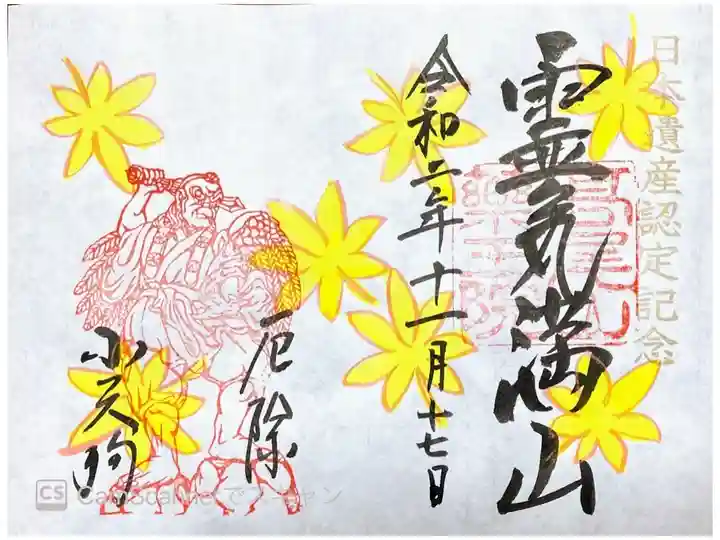 日本遺産認定記念
霊気満山
令和二年十一月十七日
厄除
小天狗
CS CamScannerでスキャン